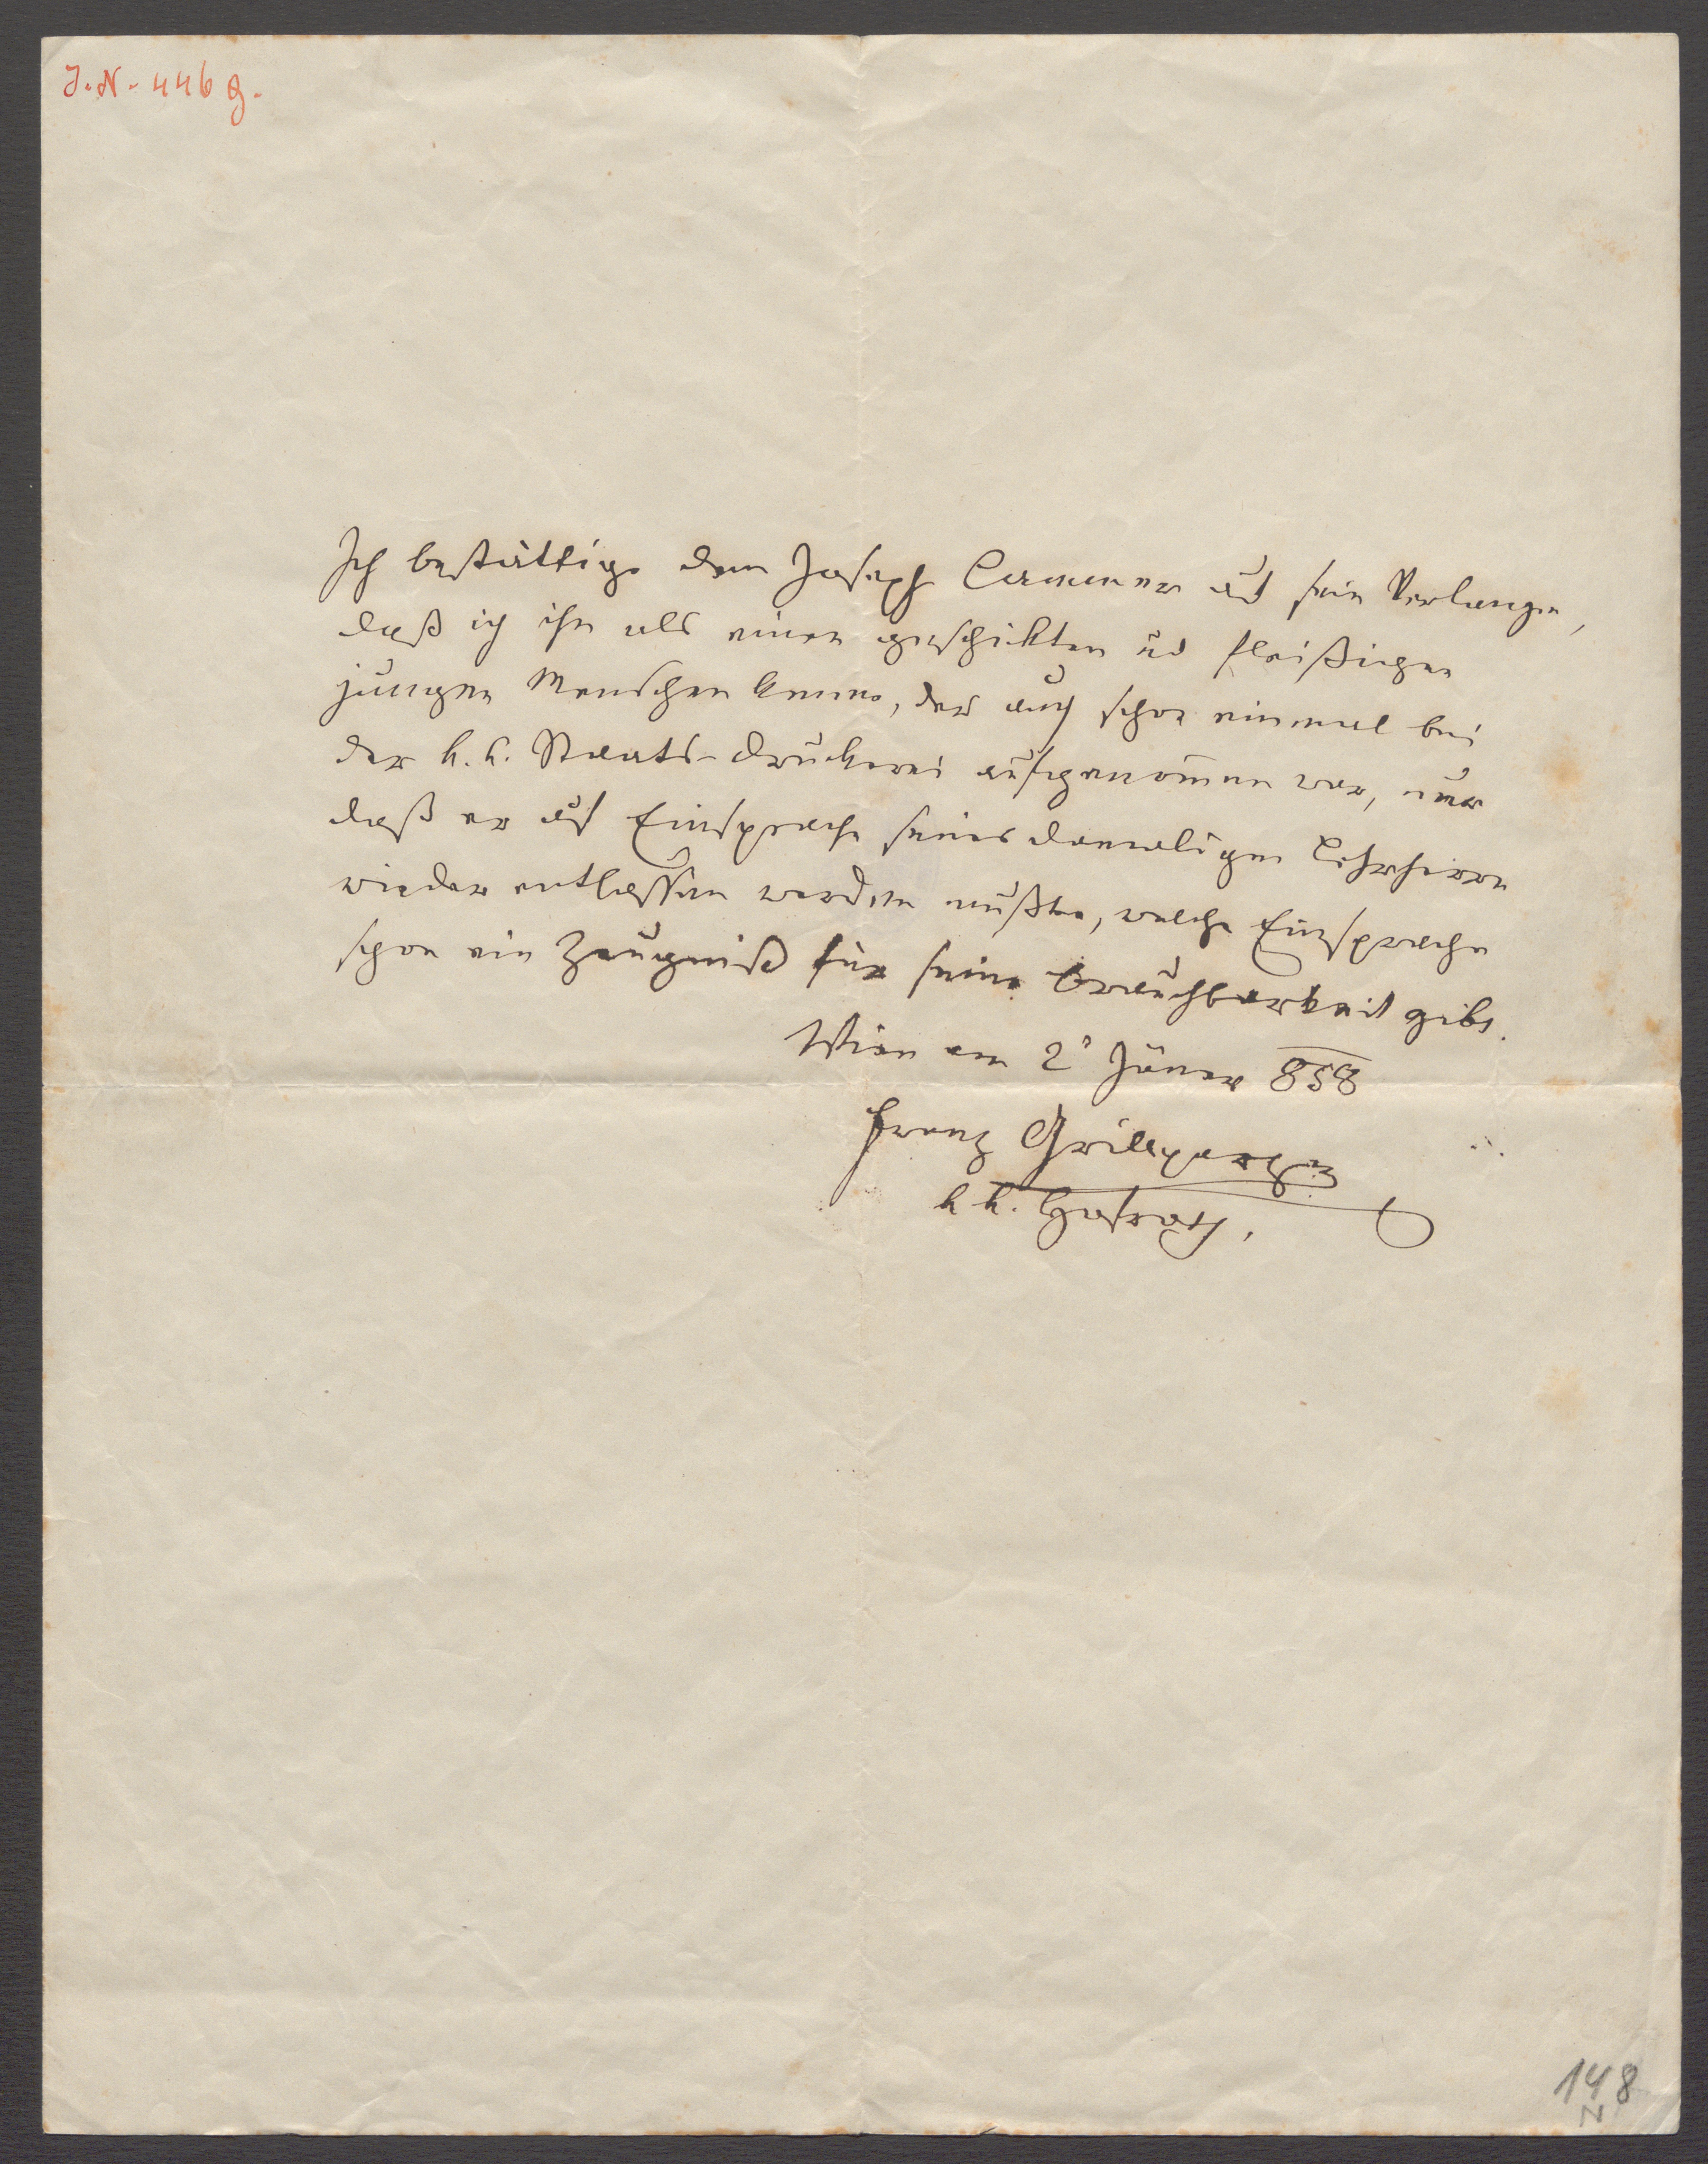 J.N. 446 g.
Ich bestättige dem Joseph Cammer auf sein Verlangen,
daß ich ihn als einen geschikten ud fleißigen
jungen Menschen kenne, der auch schon einmal bei
der k. k. Staats-Druckerei aufgenom̄en war, nur
daß er auf Einsprache seines damaligen Lehrherrn
wieder entlassen werden mußte, welche Einsprache
schon ein Zeugniß für seine Brauchbarkeit gibt.
Wien am 2t Jäner 858
Franz Grillparzer
k k. Hofrath
148
N